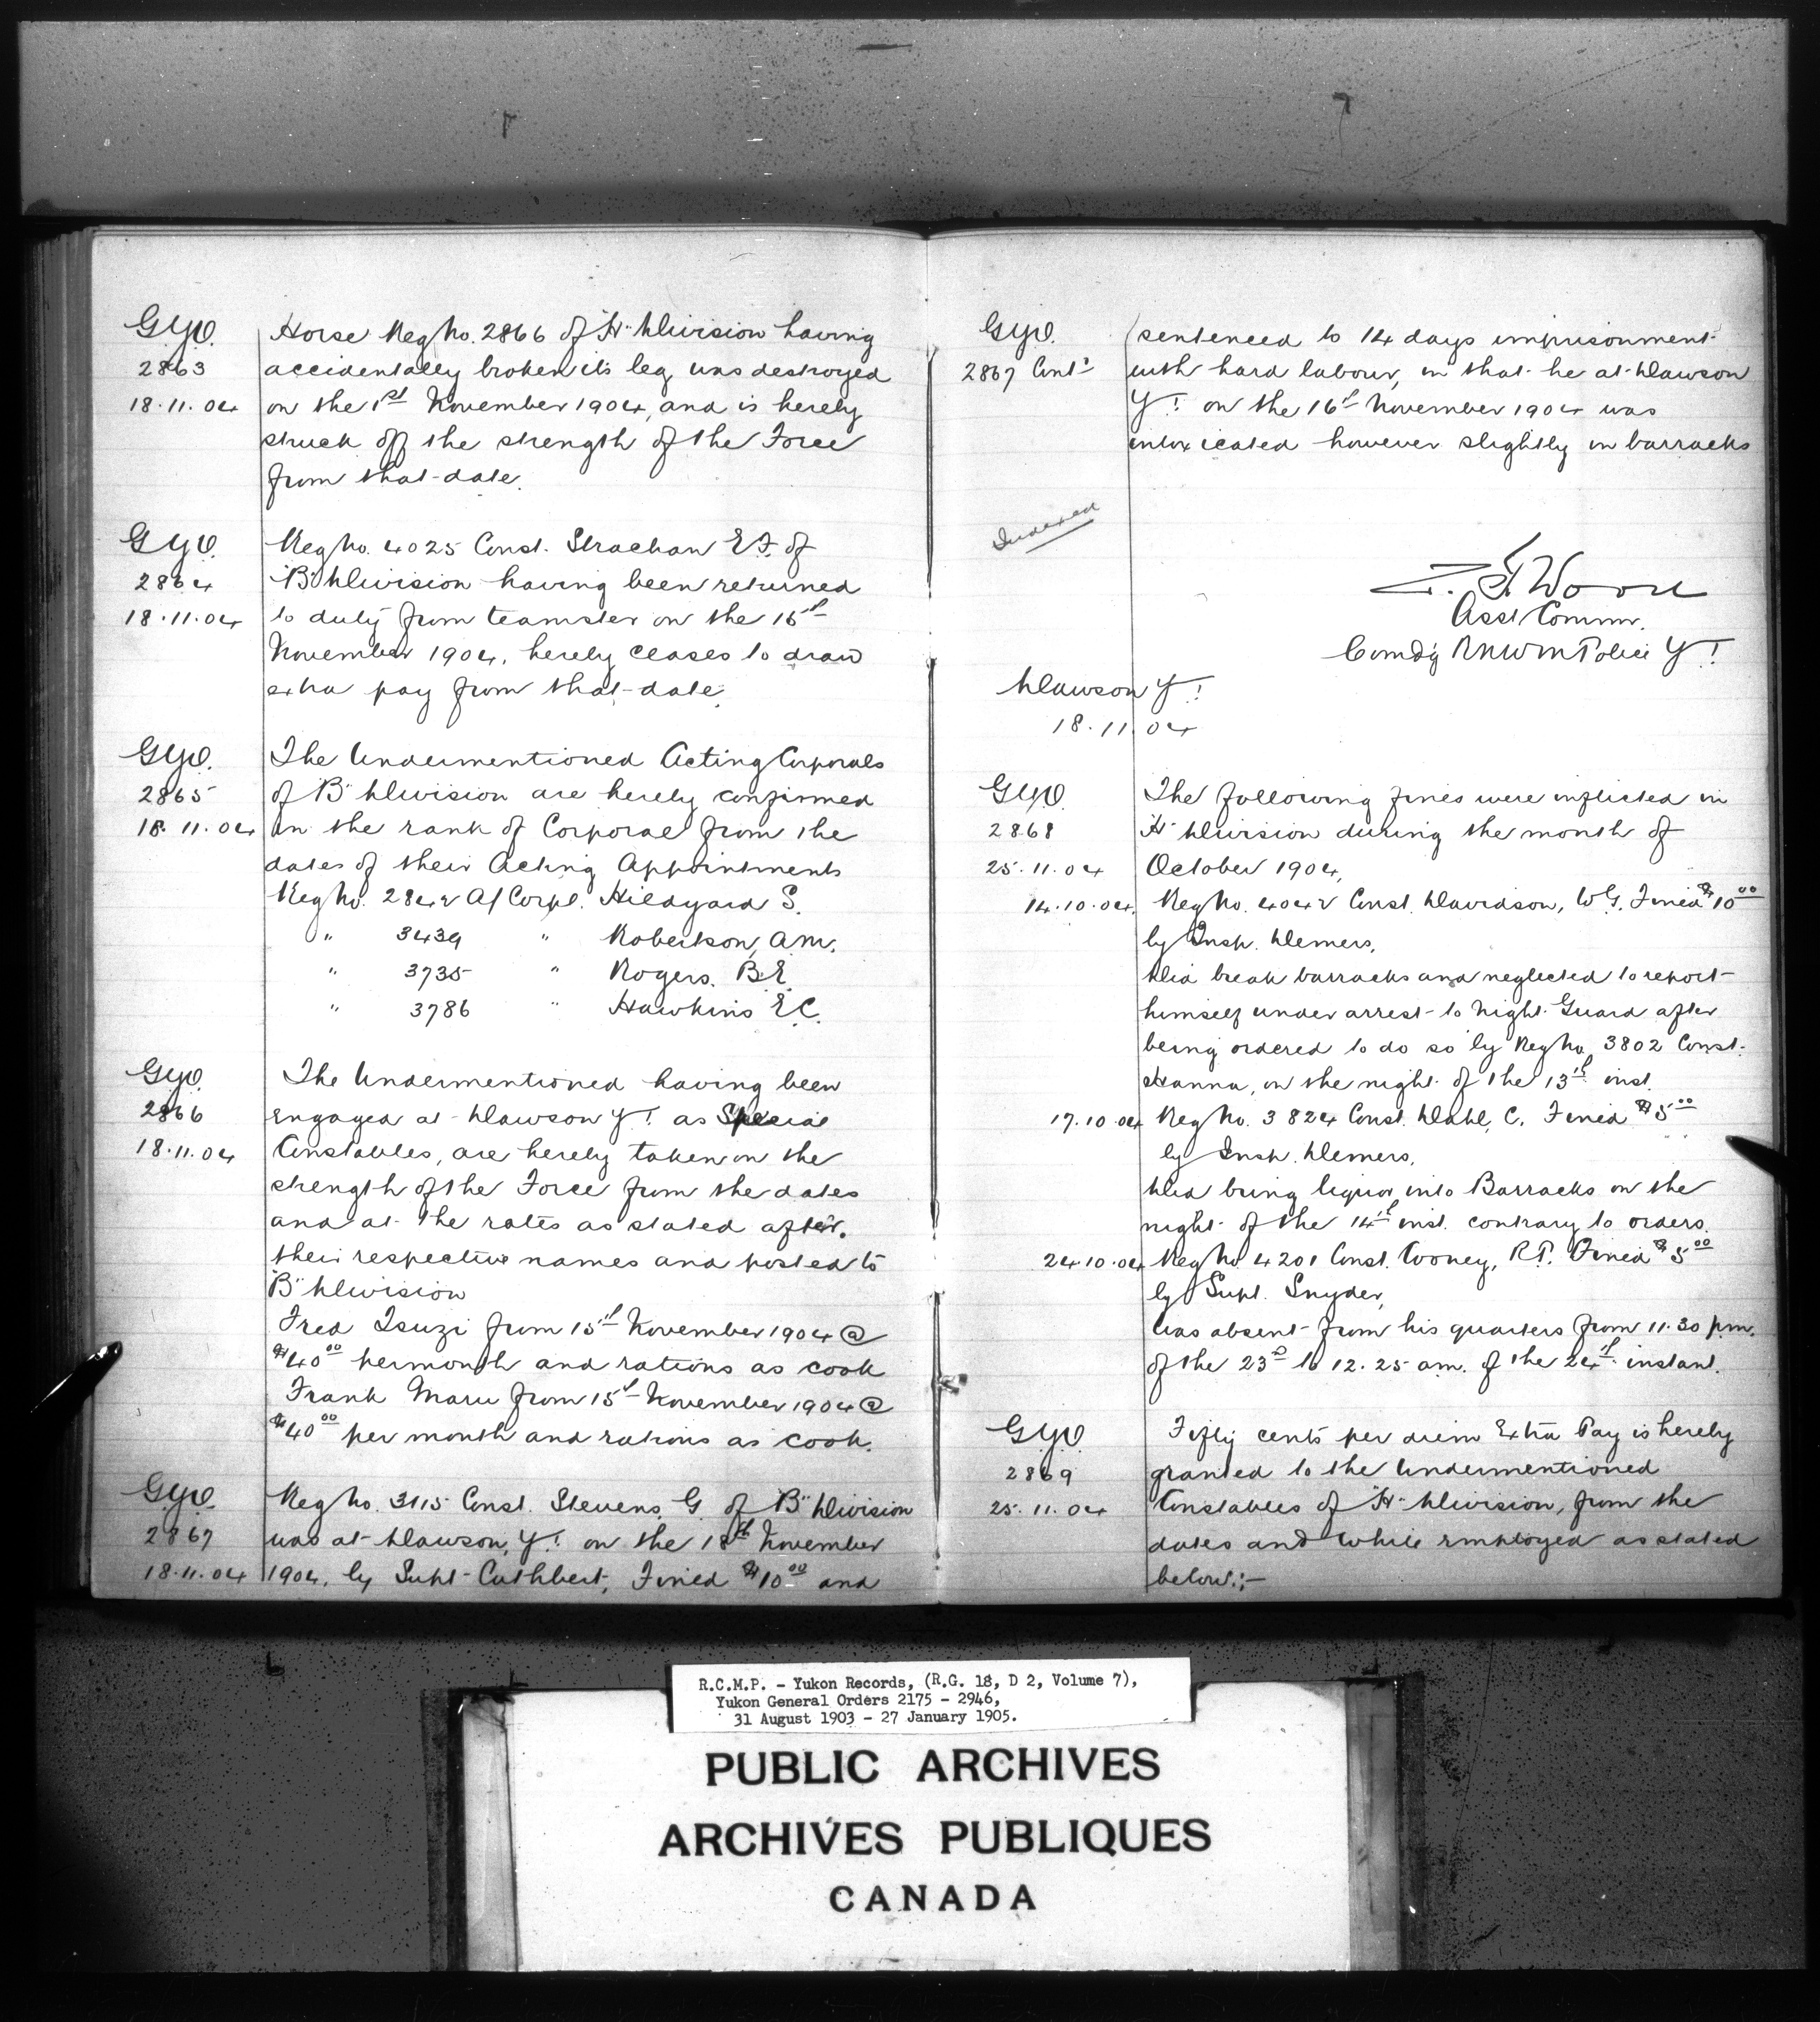 G.Y.O.
2863
18.11.04
Horse Reg No. 2866 of "H" Division having
accidentally broken its leg, was destroyed
on the 1st November 1904, and is hereby
struck off the strength of the Force
from that date.
G.Y.O.
2864
18.11.04
Reg No. 4025 Const. Strachan E.F. of
"B" Division having been returned
to duty from teamster on the 15th
November 1904, hereby ceases to draw
extra pay from that date.
G.Y.O.
2865
18.11.04
The Undermentioned Acting Corporals
of "B" Division are hereby confirmed
in the rank of Corporal from the
dates of their Acting Appointments
Reg No. 2842 A/Corpl. Hildyard S.
" 3439 " Robertson, A.M.
" 3735 " Rogers. B.E.
" 3786 " Hawkins E.C.
G.Y.O.
2866
18.11.04
The Undermentioned having been
engaged at Dawson Y.T. as Special
Constables, are hereby taken on the
strength of the Force from the dates
and at the rates as stated after
their respective names and posted to
"B" Division
Fred Isuzi from 15th November 1904 @
$40.00 per month and rations as cook
Frank Maru from 15th November 1904 @
$40.00 per month and rations as cook.
G.Y.O.
2867
18.11.04
Reg No. 3115 Const. Stevens, G. of "B" Division
was at Dawson, Y.T. on the 18th November
1904, by Supt. Cuthbert, Fined $10.00 and
G.Y.O.
2867 Contd
sentenced to 14 days imprisonment
with hard labour, in that he at Dawson
Y.T. on the 16th November 1904 was
intoxicated however slightly in barracks
Indexed
Z.T. Wood
Asst. Commr.
Comdg R.N.W.M. Police Y.T.
Dawson Y.T.
18.11.04
G.Y.O.
2868
25.11.04
The following fines were inflicted in
"H" Division during the month of
October 1904,
14.10.04. Reg No. 4042 Const. Davidson, W.G. Fined $10.00
by Insp. Demers,
Did break barracks and neglected to report
himself under arrest to Night Guard after
being ordered to do so by Reg No. 3802 Const.
Hanna, on the night of the 13th inst.
17.10.04 Reg No. 3824 Const. Dahl, C. Fined $5.00
by Insp. Demers,
Did bring liquor into Barracks on the
night of the 14th inst. contrary to orders.
24.10.04 Reg No. 4201 Const. Cooney, R.P. Fined $5.00
by Supt. Snyder,
Was absent from his quarters from 11.30 p.m.
of the 23rd to 12.25 a.m. of the 24th instant.
G.Y.O.
2869
25.11.04
Fifty cents per diem Extra Pay is hereby
granted to the Undermentioned
Constables of "H" Division, from the
dates and while employed as stated
below:-
R.C.M.P. - Yukon Records, (R.G. 18, D 2, Volume 7),
Yukon General Orders 2175 - 2946,
31 August 1903 - 27 January 1905.
PUBLIC ARCHIVES
ARCHIVES PUBLIQUES
CANADA